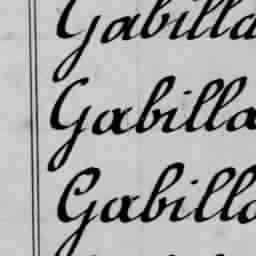 Gabilla
Gabilla
Gabilla